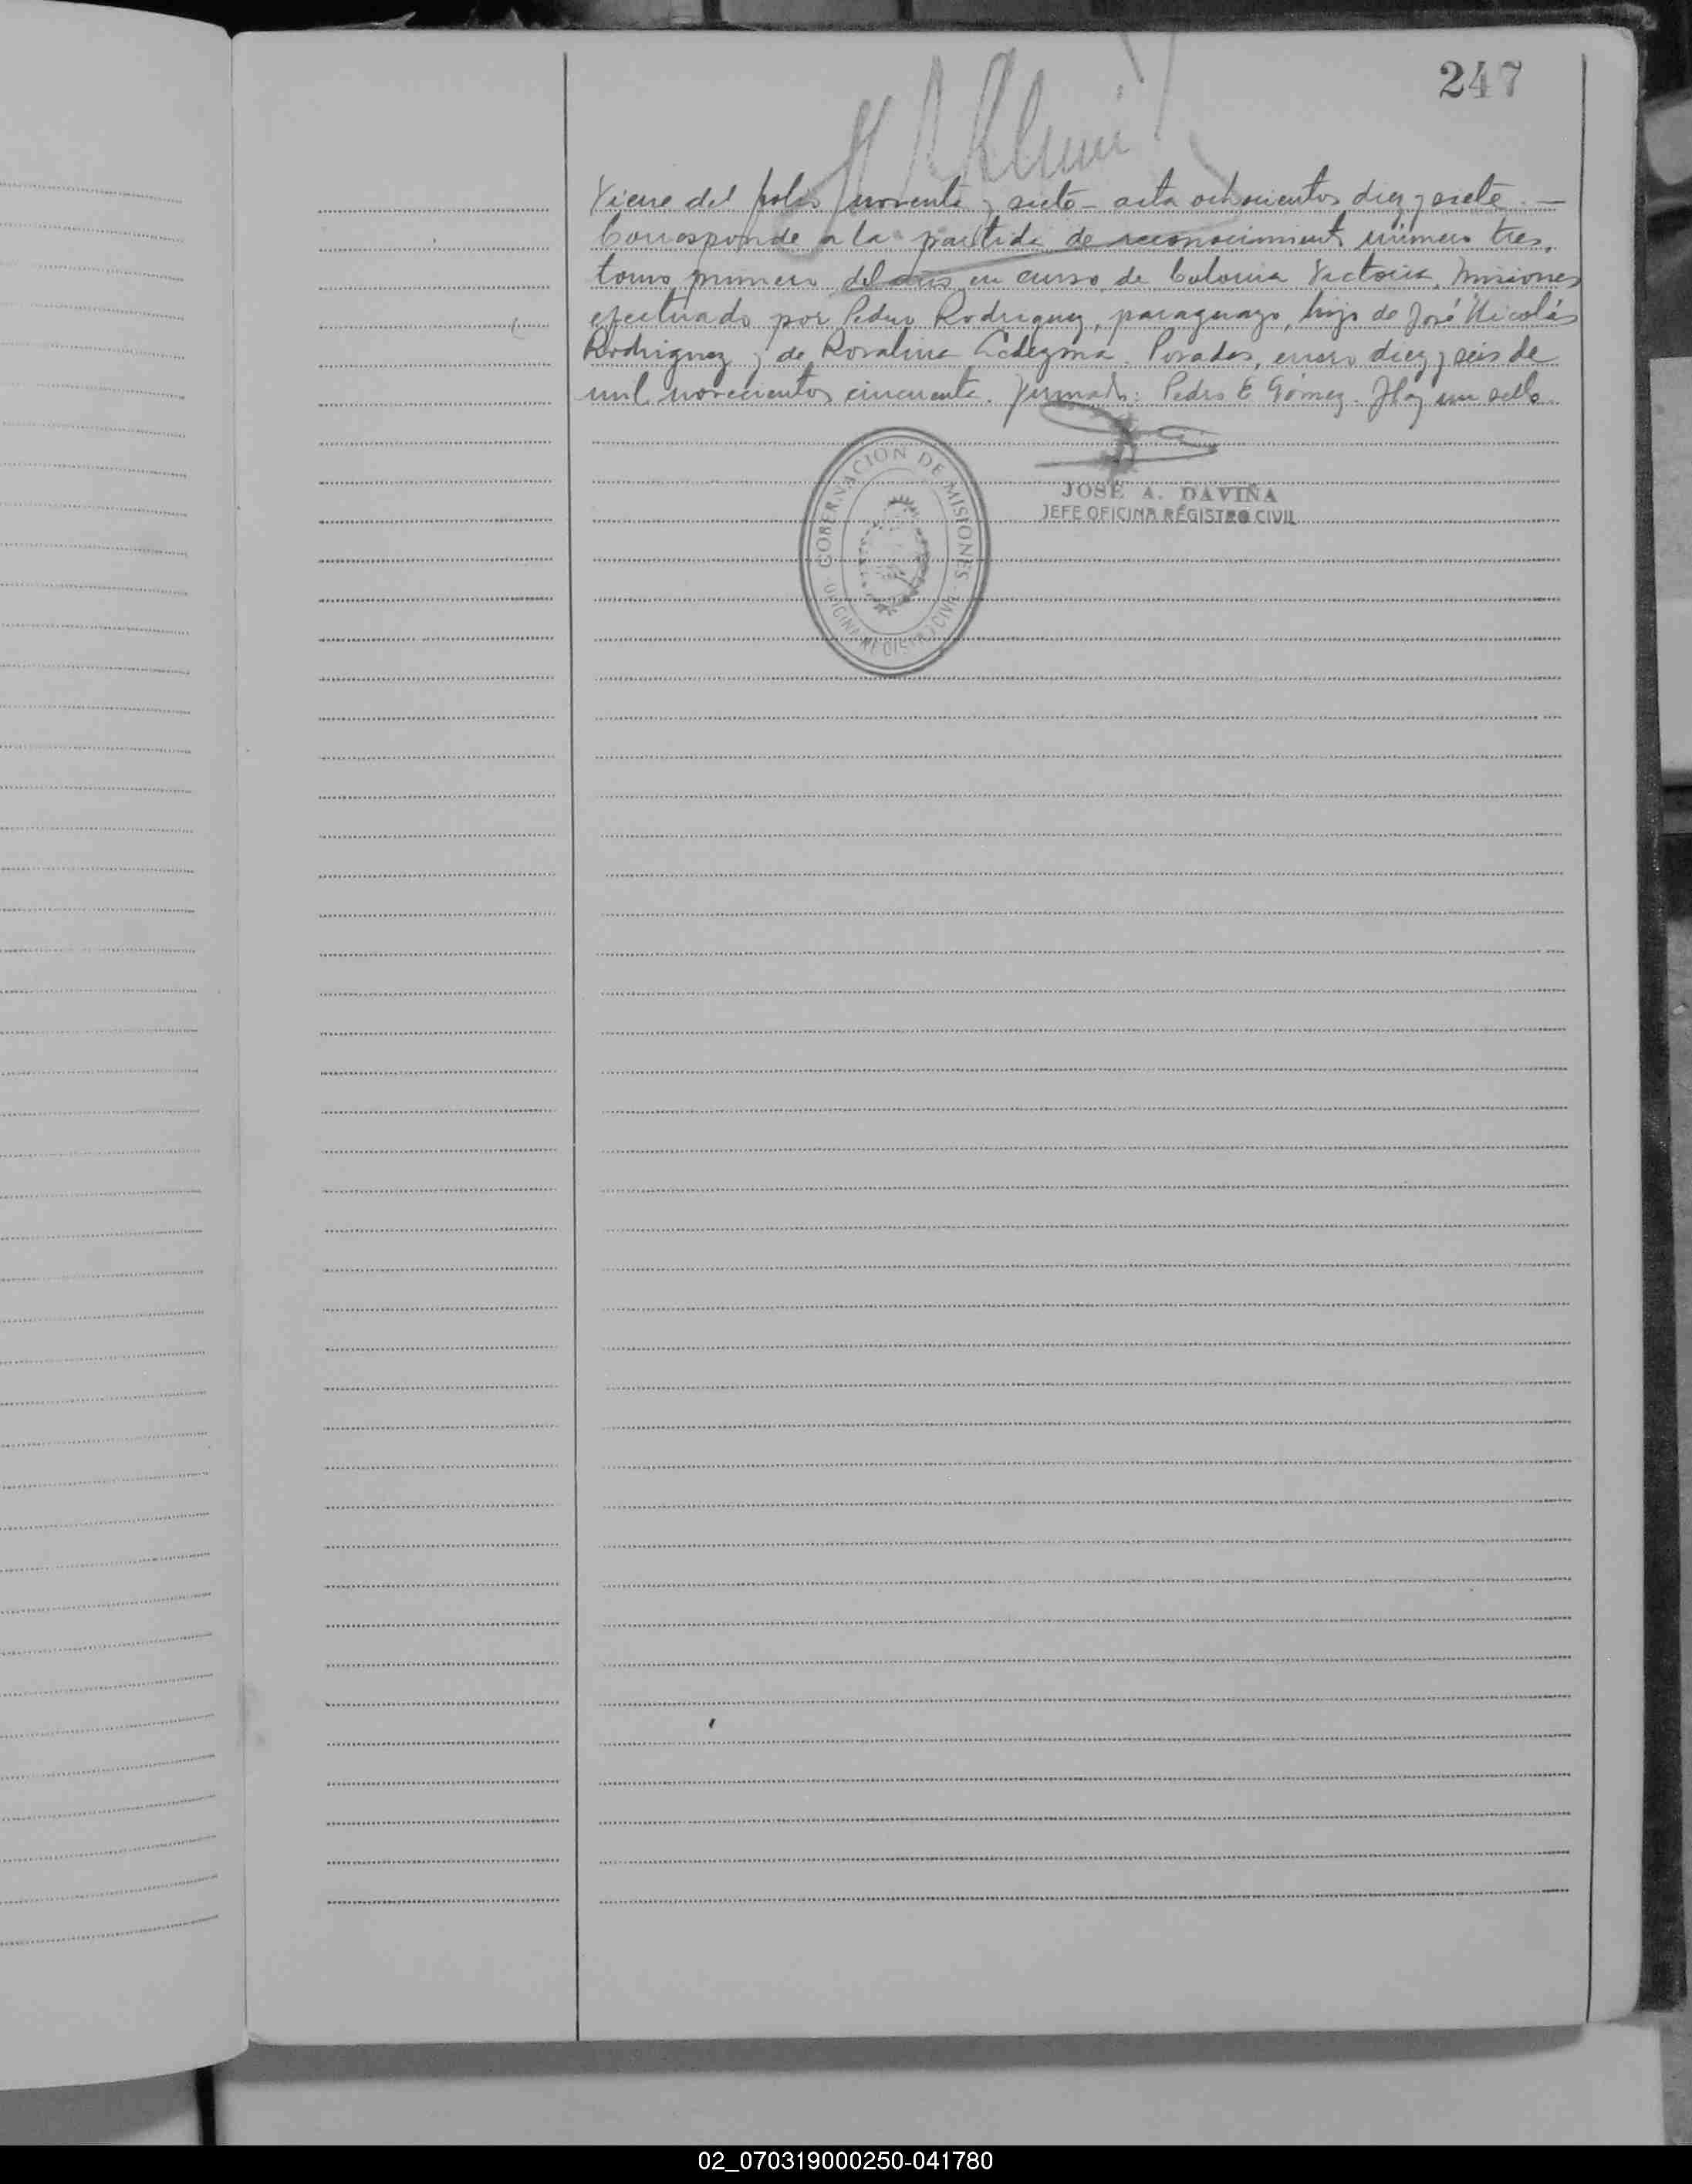 247
Viene del folio noventa y siete - acta ochocientos diez y siete. —
Corresponde a la partida de reconocimiento número tres,
tomo primero del año en curso, de Colonia Victoria, Misiones
efectuado por Pedro Rodriguez, paraguayo, hijo de José Nicolás
Rodriguez y de Rosalina Ledezma. Posadas, enero diez y seis de
mil novecientos cincuenta. Firmado: Pedro E Gómez. Hay un sello.
GOBERNACION DE MISIONES
OFICINA REGISTRO CIVIL
JOSÉ A. DAVIÑA
JEFE OFICINA REGISTRO CIVIL
02_070319000250-041780